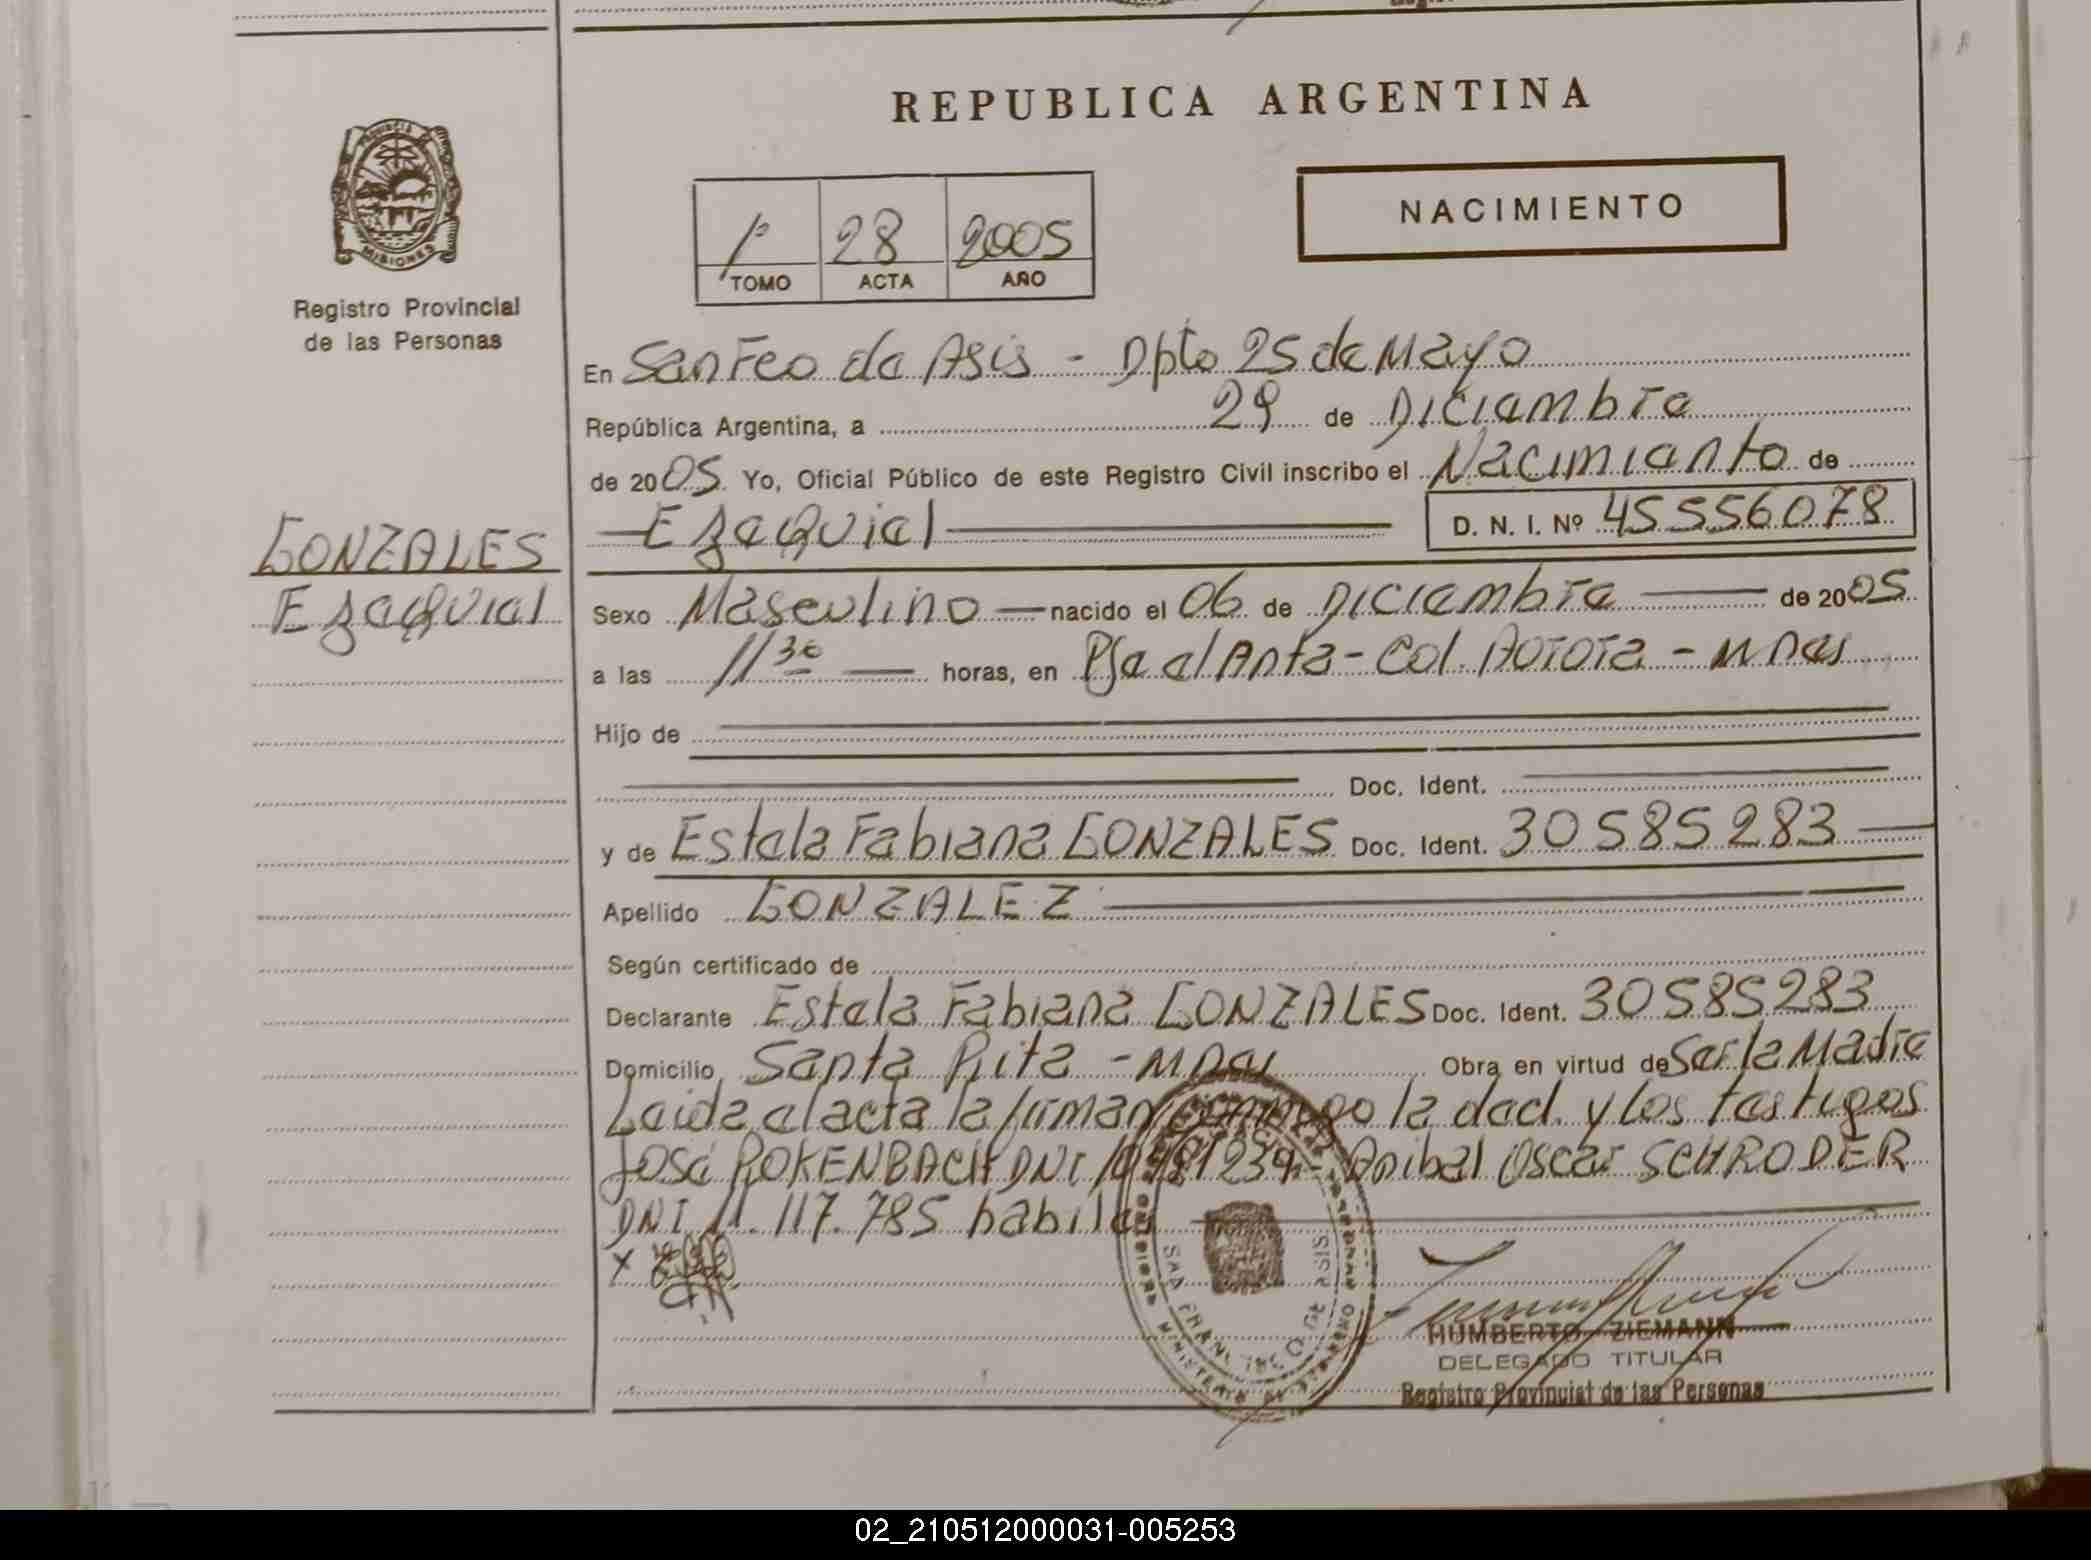 REPUBLICA ARGENTINA
PROVINCIA
MISIONES
Registro Provincial
de las Personas
NACIMIENTO
1º 28 2005
TOMO ACTA AÑO
En San Fco de Asis - Dpto 25 de Mayo
República Argentina, a 29 de Diciembre
de 2005 Yo, Oficial Público de este Registro Civil inscribo el Nacimiento de
Ezequiel D. N. I. Nº 45556078
GONZALES
Ezequiel
Sexo Masculino nacido el 06 de Diciembre de 2005
a las 11 30 horas, en Pje el Anta - Col. Aurora - Mnes
Hijo de
Doc. Ident.
y de Estela Fabiana GONZALES Doc. Ident. 30585283
Apellido GONZALEZ
Según certificado de
Declarante Estela Fabiana GONZALES Doc. Ident. 30585283
Domicilio Santa Rita - Mnes Obra en virtud de Ser la Madre
Leida el acta la firman conmigo la decl. y los testigos
José ROKENBACH DNI Anibal Oscar SCHRODER
DNI 11.117.785 habiles
x
SAN FRANCISCO DE ASIS
HUMBERTO ZIEMANN
DELEGADO TITULAR
Registro Provincial de las Personas
02_210512000031-005253